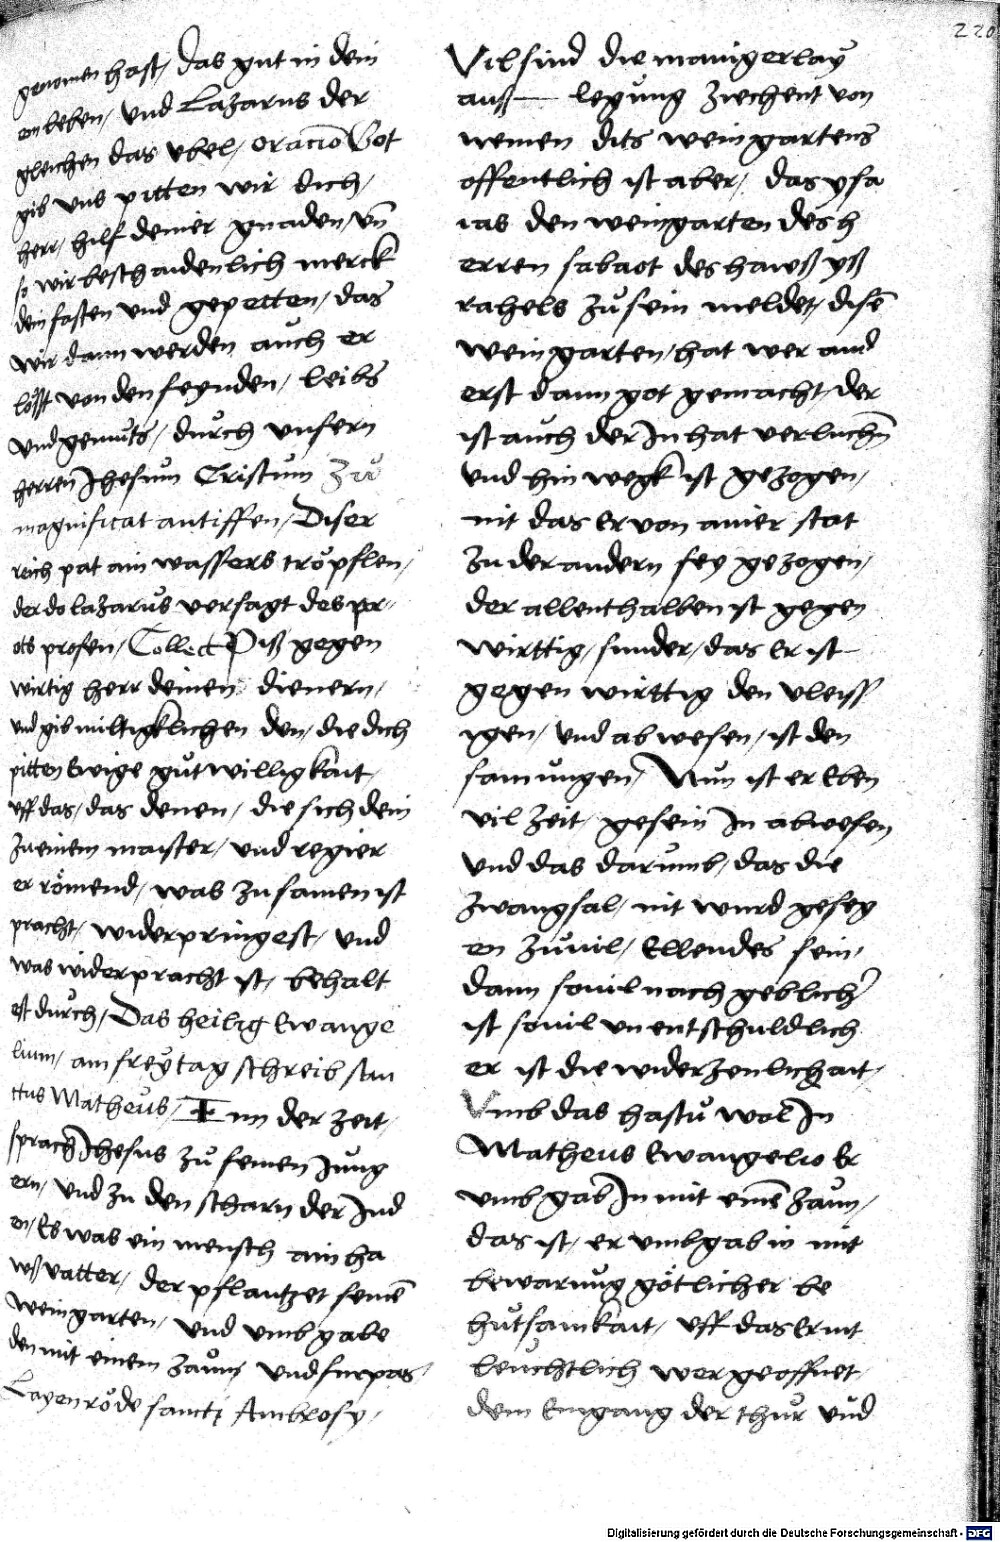 220
genomen hast / das gut in dein
em leben / vnd Lazarus der
gleichen das vbel / oracio Got
gib vns pitten wir dich /
herr / hilf deiner gnaden / vn̄
so wir beschaidenlich merck
den fasten vnd gepetten / das
wir dann werden auch er
löst von den feynden / leibs
vnd gemüts / durch vnsern
herren Jhesum Cristum Zů
magnificat antiffen / Diser
reich pat ain wassers tröpflen /
der do lazarus versagt des pr
ots prosen / Collect Piß gegen
wirtig herr deinen dienern /
vnd gib miltigklichen den / die dich
pitten Ewige gůtwilligkait /
vff das / das denen / die sich dein
zu einem maister / vnd regier
er römend / was zusamen ist
pracht / widerpringest / vnd
was widerpracht ist / behalt
est durch / Das heilig Ewange
lium / am freytag schreib san
ctus Matheus / In der zeit /
sprach Jhesus zů seinen Jung
ern / vnd zu den scharn der Jud
en / Es was ein mensch ain ha
wß vatter / der pflantzet seinē
weingarten / vnd vmbgabe
den mit einem zaun vnd furpas
Layenröde sancti Ambrosy /
Vil sind die manigerlay
auß— legung ziechent von
wemen dits weingartens
offentlich ist aber / das ysa
ias den weingarten des h
erren sabaot des hawß yß
rahels zů sein meldet / disē
weingarten / hat wer and
erst dann got gemacht / der
ist auch der In hat verluchn̄
vnd hin wegk ist gezogen /
nit das Er von ainer stat
zu der andern sey gezogen /
der allenthalben ist gegen
wirttig / sunder / das Er ist
gegen wirttig den vleiss
igen / vnd abwesen / ist den
samungen / Nun ist er Eben
vil zeit / gesein In abwesen
vnd das darumb / das die
zwangsal / nit wurd geseg
en zuuil / Ellendes sein /
dann souil nach geblicher
ist souil vnentschuldlich
er ist die widerzenlichait /
Vmb das hastu wol In
Matheus Ewangelio Er
vmbgab In mit einē zaun /
das ist / er vmbgab in mit
bewarung götlicher be
hutsamkait / vff das Er nit
leuchtlich wer geoffnet
dem Eingang der thur vnd
Digitalisierung gefördert durch die Deutsche Forschungsgemeinschaft - DFG